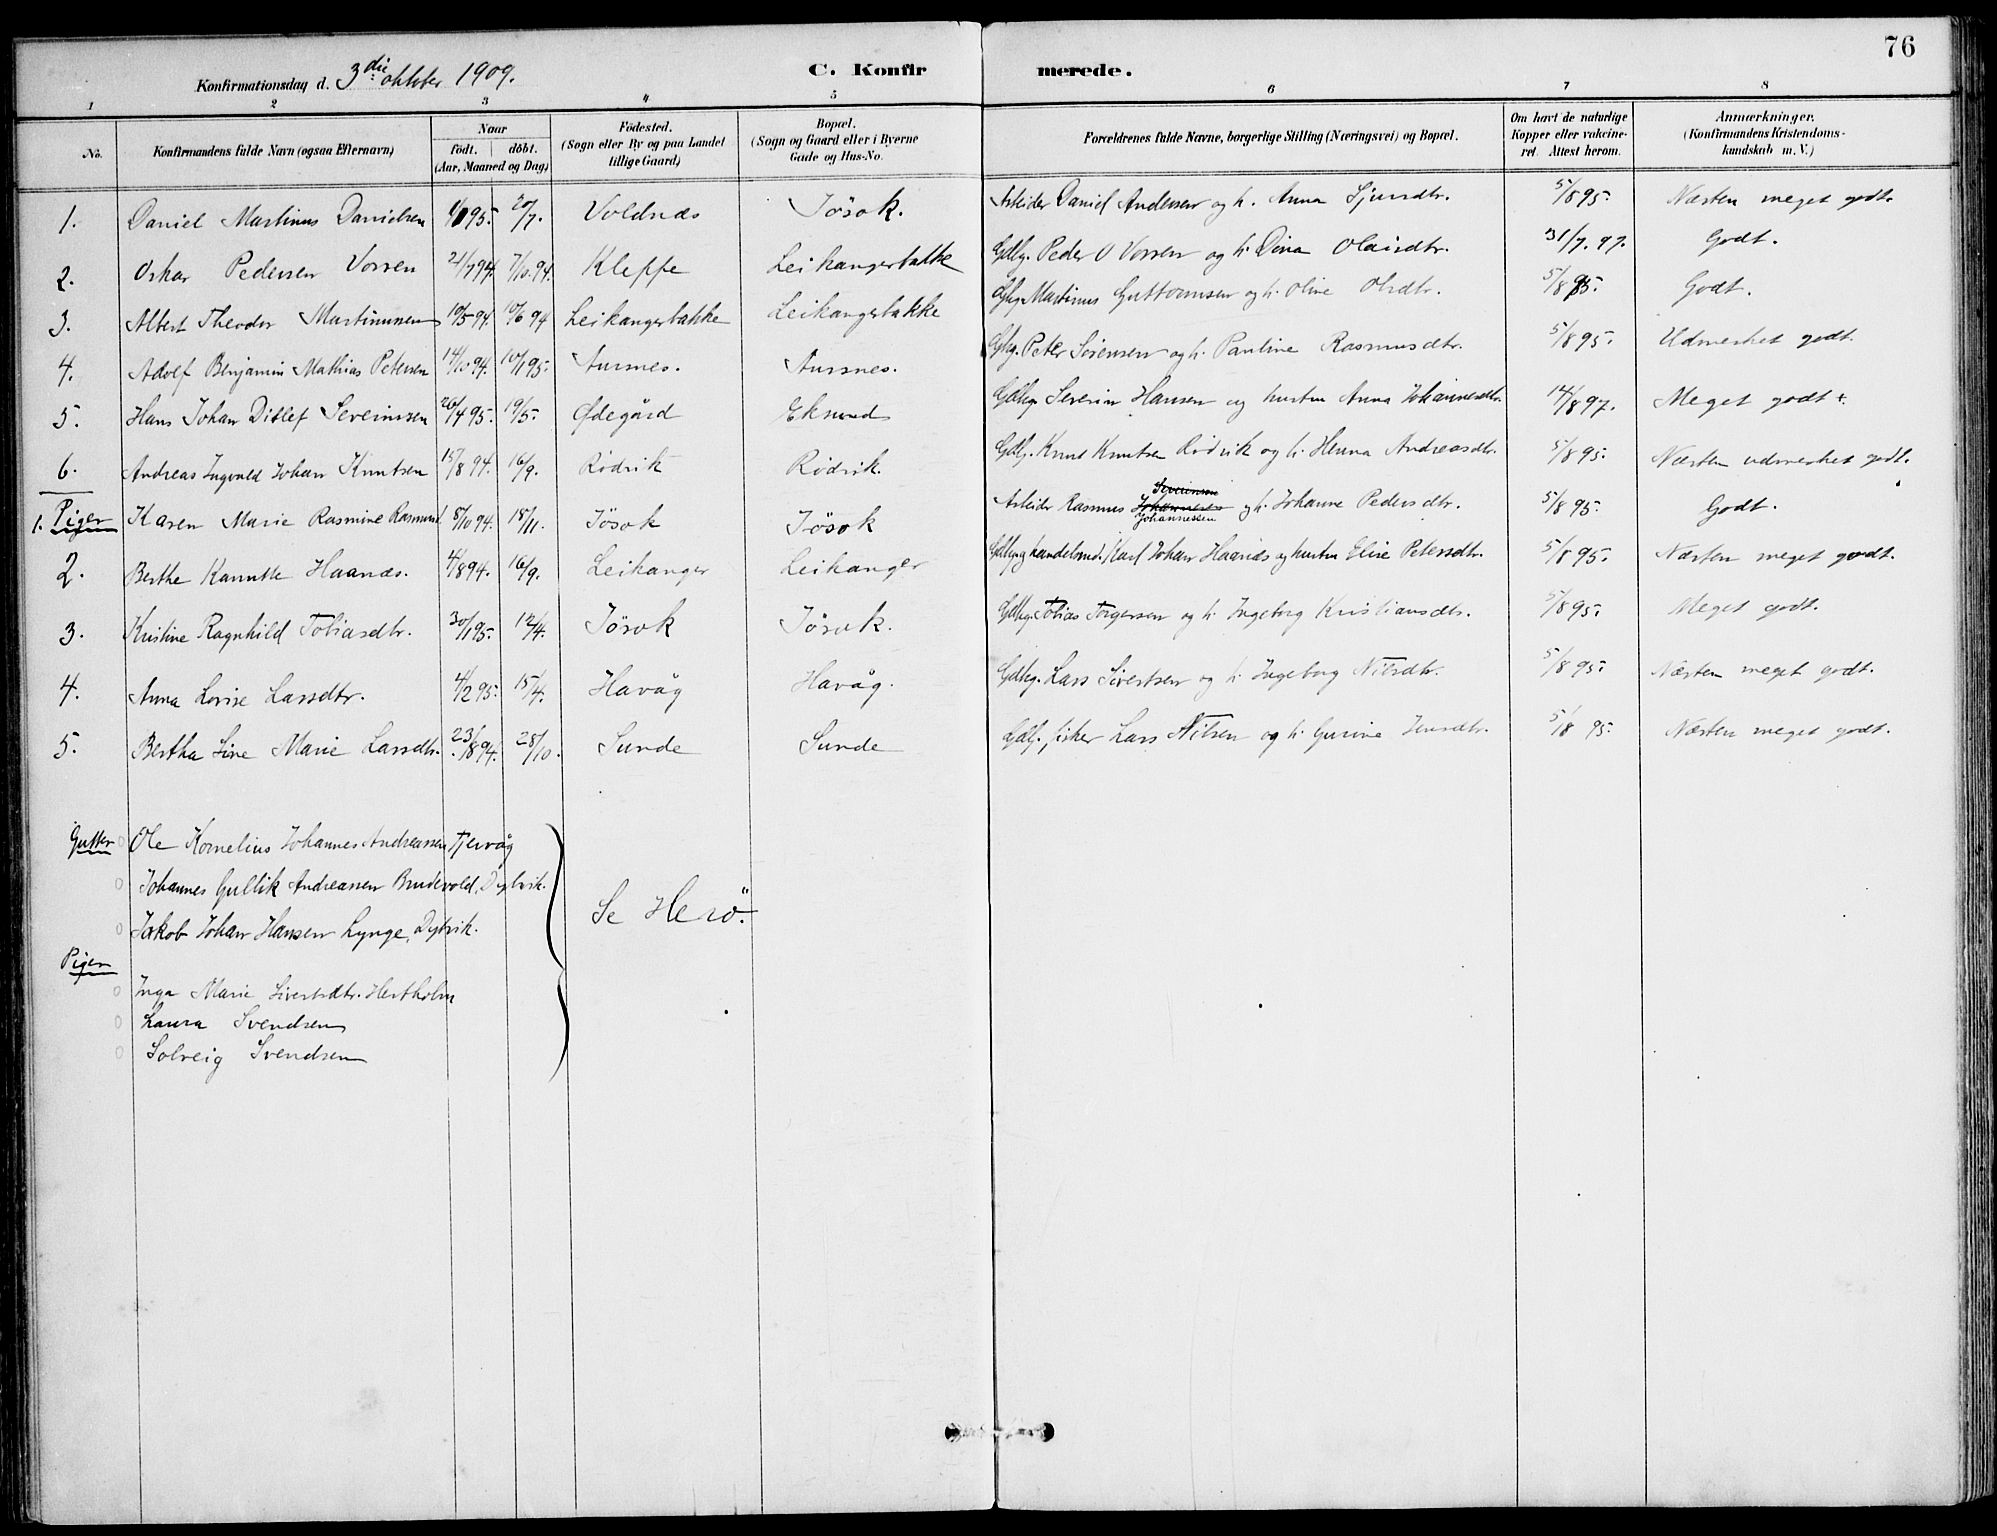 76
Konfirmationsdag d. 3die oktober 1909. C. Konfir merede.
1 2 3 4 5 6 7 8
No. Konfirmandens fulde Navn (ogsaa Efternavn) Naar födt. döbt. (Aar, Maaned og Dag) Födested. (Sogn eller By og paa Landet tillige Gaard) Bopæl. (Sogn og Gaard eller i Byerne Gade og Hus-No. Forældrenes fulde Navne, borgerlige Stilling (Næringsvei) og Bopæl. Om havt de naturlige Kopper eller vakcineret. Attest herom. Anmærkninger. (Konfirmandens Kristendomskundskab m. V.)
1. Daniel Martinus Danielsen 95. 20/7. Voldnæs Jösok. Arbeider Daniel Andersen og h. Anna Sjursdtr. 5/8 95. Næsten meget godt.
2. Oskar Pedersen Vorren 21/7 94. 7/10. 94. Kleppe Leikangerbakke Gdbg. Peder O Vorren og h. Dina Olausdtr. 31/7. 97. Godt.
3. Albert Theodor Martinussen 10/5 94. 10/6 94 Leikangerbakke Leikangerbakke Gbg. Martinus Guttormsen og h. Oline Olsdtr. 5/8 95. Godt.
4. Adolf Benjamin Mathias Petersen 14/10 94. 10/1 95. Aursnes. Aursnes. Gbg. Peter Sörensen og h. Pauline Rasmusdtr. 5/8 95. Udmerket godt.
5. Hans Johan Ditlef Severinssen 26/4 95. 19/5. Ødegård Eksund Gdbg. Severin Hansen og hustru Anna Johannesdtr. 14/8 97. Meget godt +.
6. Andreas Ingvald Johan Knutsen 15/8 94. 16/9. Rödvik Rödvik. Gdbg. Knut Knutsen Rödvik og h. Henna Andreasdtr. 5/8 95. Næsten udmerket godt.
1. Piger Karen Marie Rasmine Rasmusd. 8/10 94. 18/11. Jösok Jösok Arbeider Rasmus Severinsen Johannessen og h. Johanne Pedersdtr. 5/8 95. Godt.
2. Berthe Kamille Haanæs. 4/8 94. 16/9. Leikanger Leikanger Gdbg. og handelsmd. Karl Johan Haanæs og hustru Elise Petersdtr. 5/8 95. Næsten meget godt.
3. Kristine Ragnhild Tobiasdtr. 30/1 95. 12/4. Jösok Jösok. Gdbg. Tobias Torgersen og h. Ingeborg Kristiansdtr. 5/8 95. Meget godt.
4. Anna Lovise Larsdtr. 4/2 95. 15/4. Havåg Havåg. Gdbg. Lars Sivertsen og h. Ingeborg Nilsdtr. 5/8 95. Næsten meget godt.
5. Bertha Line Marie Larsdtr. 23/8 94. 28/10. Sunde Sunde Gdbg. fisker Lars Nilsen og h. Gurine Jensdtr. 5/8 95. Næsten meget godt.
Gutter Ole Kornelius Johannes Andreassen Tjervåg
Johannes Gullik Andreassen Brudevold, Dybvik.
Jakob Johan Hansen Lynge, Dybvik.
Se Herö.
Piger
Inga Marie Sivertsdtr. Hestholm
Laura Svendsen
Solveig Svendsen